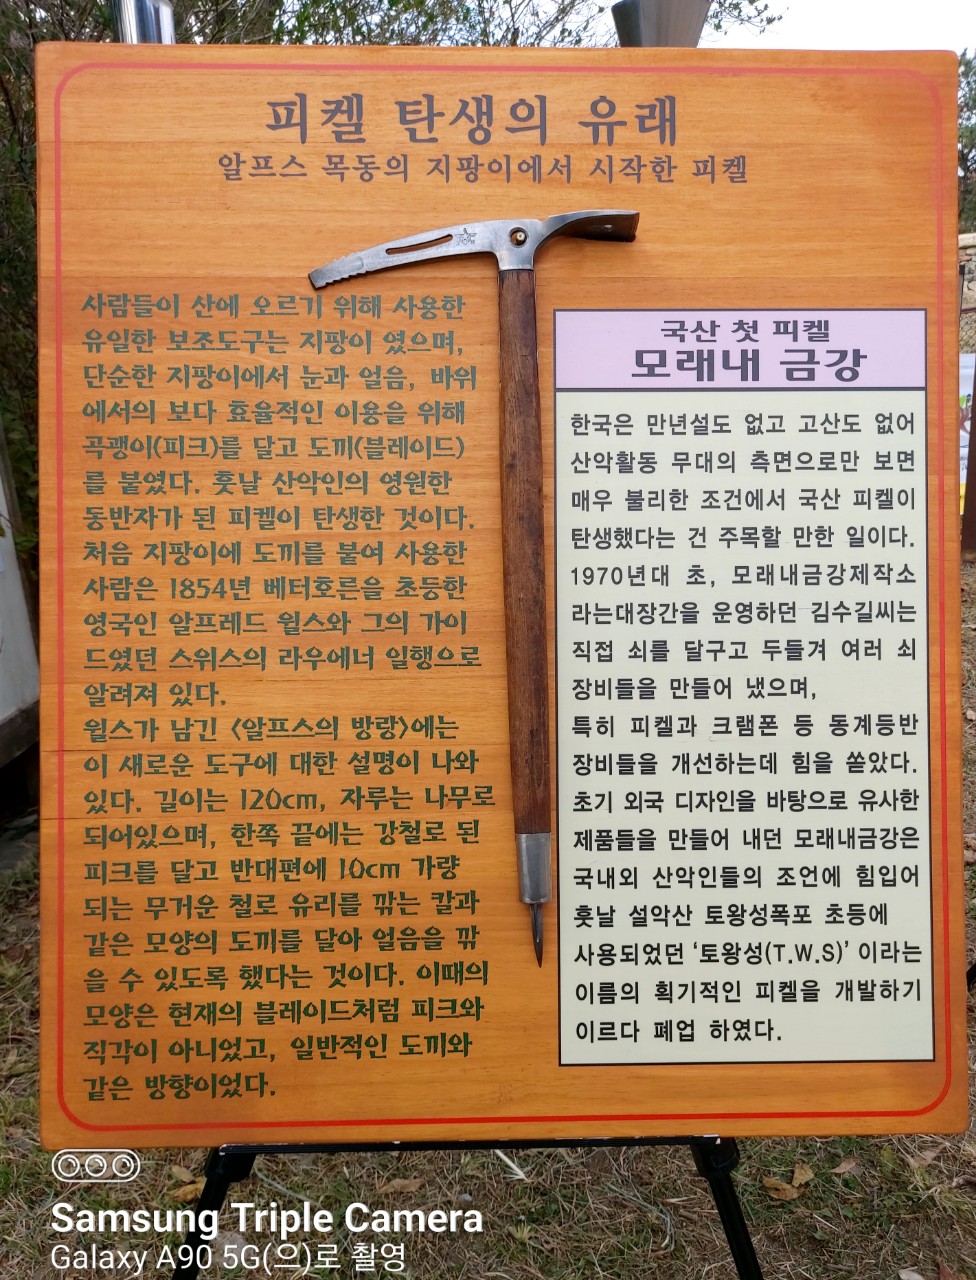 피켈 탄생의 유래
알프스 목동의 지팡이에서 시작한 피켈
사람들이 산에 오르기 위해 사용한
유일한 보조도구는 지팡이 였으며,
단순한 지팡이에서 눈과 얼음, 바위
에서의 보다 효율적인 이용을 위해
곡괭이(피크)를 달고 도끼(블레이드)
를 붙였다. 훗날 산악인의 영원한
동반자가 된 피켈이 탄생한 것이다.
처음 지팡이에 도끼를 붙여 사용한
사람은 1854년 베터호른을 초등한
영국인 알프레드 윌스와 그의 가이
드였던 스위스의 라우에너 일행으로
알려져 있다.
윌스가 남긴 <알프스의 방랑>에는
이 새로운 도구에 대한 설명이 나와
있다. 길이는 120cm, 자루는 나무로
되어있으며, 한쪽 끝에는 강철로 된
피크를 달고 반대편에 10cm 가량
되는 무거운 철로 유리를 깎는 칼과
같은 모양의 도끼를 달아 얼음을 깎
을 수 있도록 했다는 것이다. 이때의
모양은 현재의 블레이드처럼 피크와
직각이 아니었고, 일반적인 도끼와
같은 방향이었다.
국산 첫 피켈
모래내 금강
한국은 만년설도 없고 고산도 없어
산악활동 무대의 측면으로만 보면
매우 불리한 조건에서 국산 피켈이
탄생했다는 건 주목할 만한 일이다.
1970년대 초, 모래내금강제작소
라는대장간을 운영하던 김수길씨는
직접 쇠를 달구고 두들겨 여러 쇠
장비들을 만들어 냈으며,
특히 피켈과 크램폰 등 동계등반
장비들을 개선하는데 힘을 쏟았다.
초기 외국 디자인을 바탕으로 유사한
제품들을 만들어 내던 모래내금강은
국내외 산악인들의 조언에 힘입어
훗날 설악산 토왕성폭포 초등에
사용되었던 ‘토왕성(T.W.S)’ 이라는
이름의 획기적인 피켈을 개발하기
이르다 폐업 하였다.
Samsung Triple Camera
Galaxy A90 5G(으)로 촬영